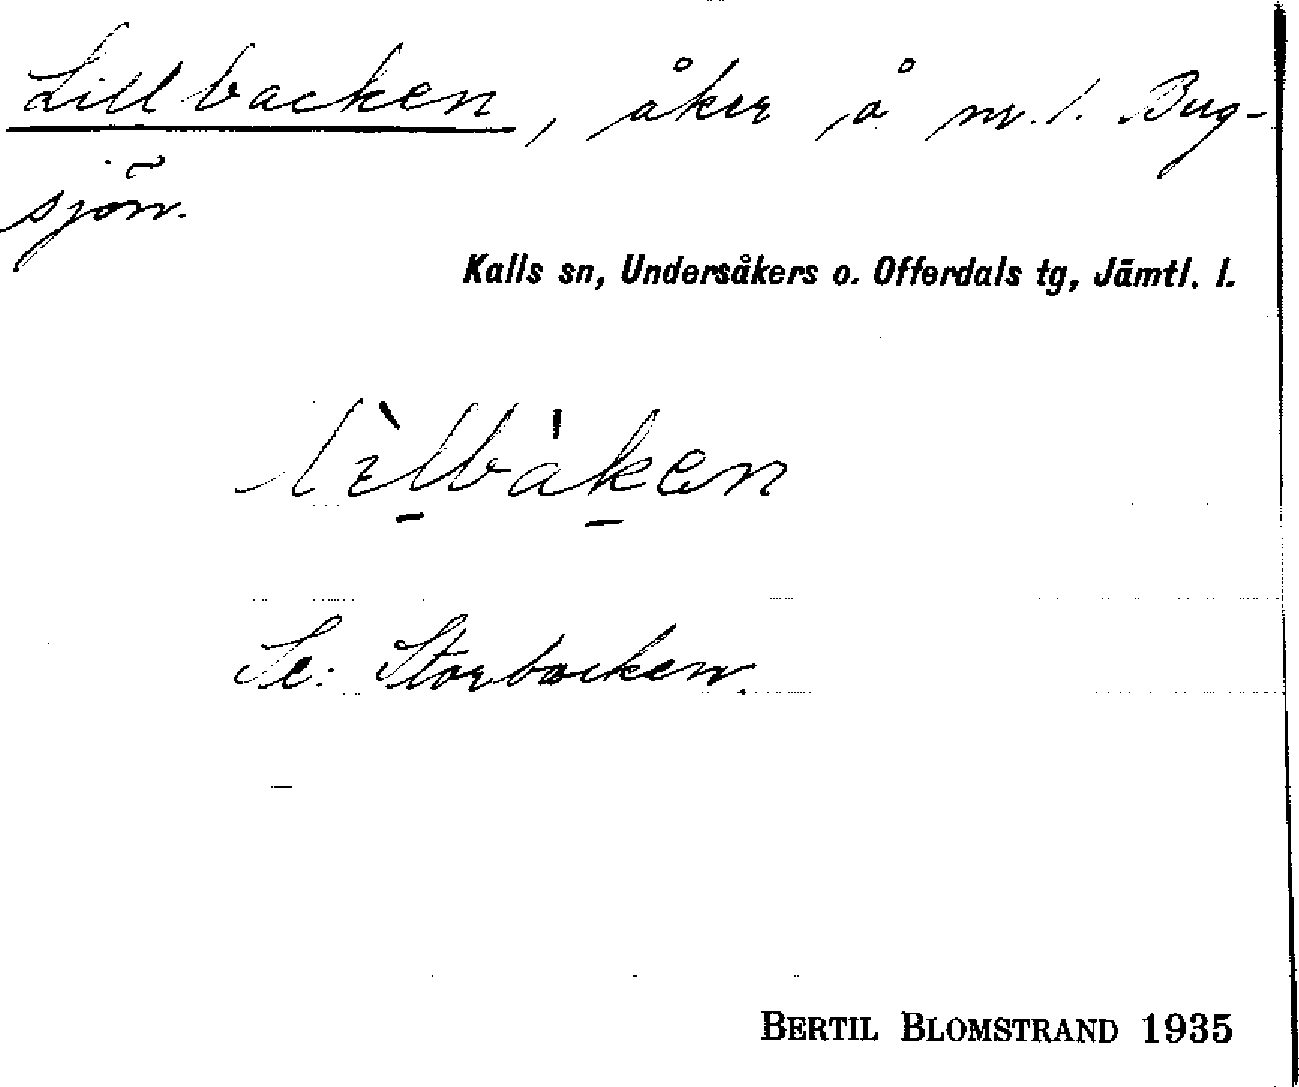 Lillbacken, åker å nr. 1. Bug-
sjön.
Kalls sn, Undersåkers o. Offerdals tg, Jämtl. l.
lìlbáken
Se: Storbacken.
BERTIL BLOMSTRAND 1935